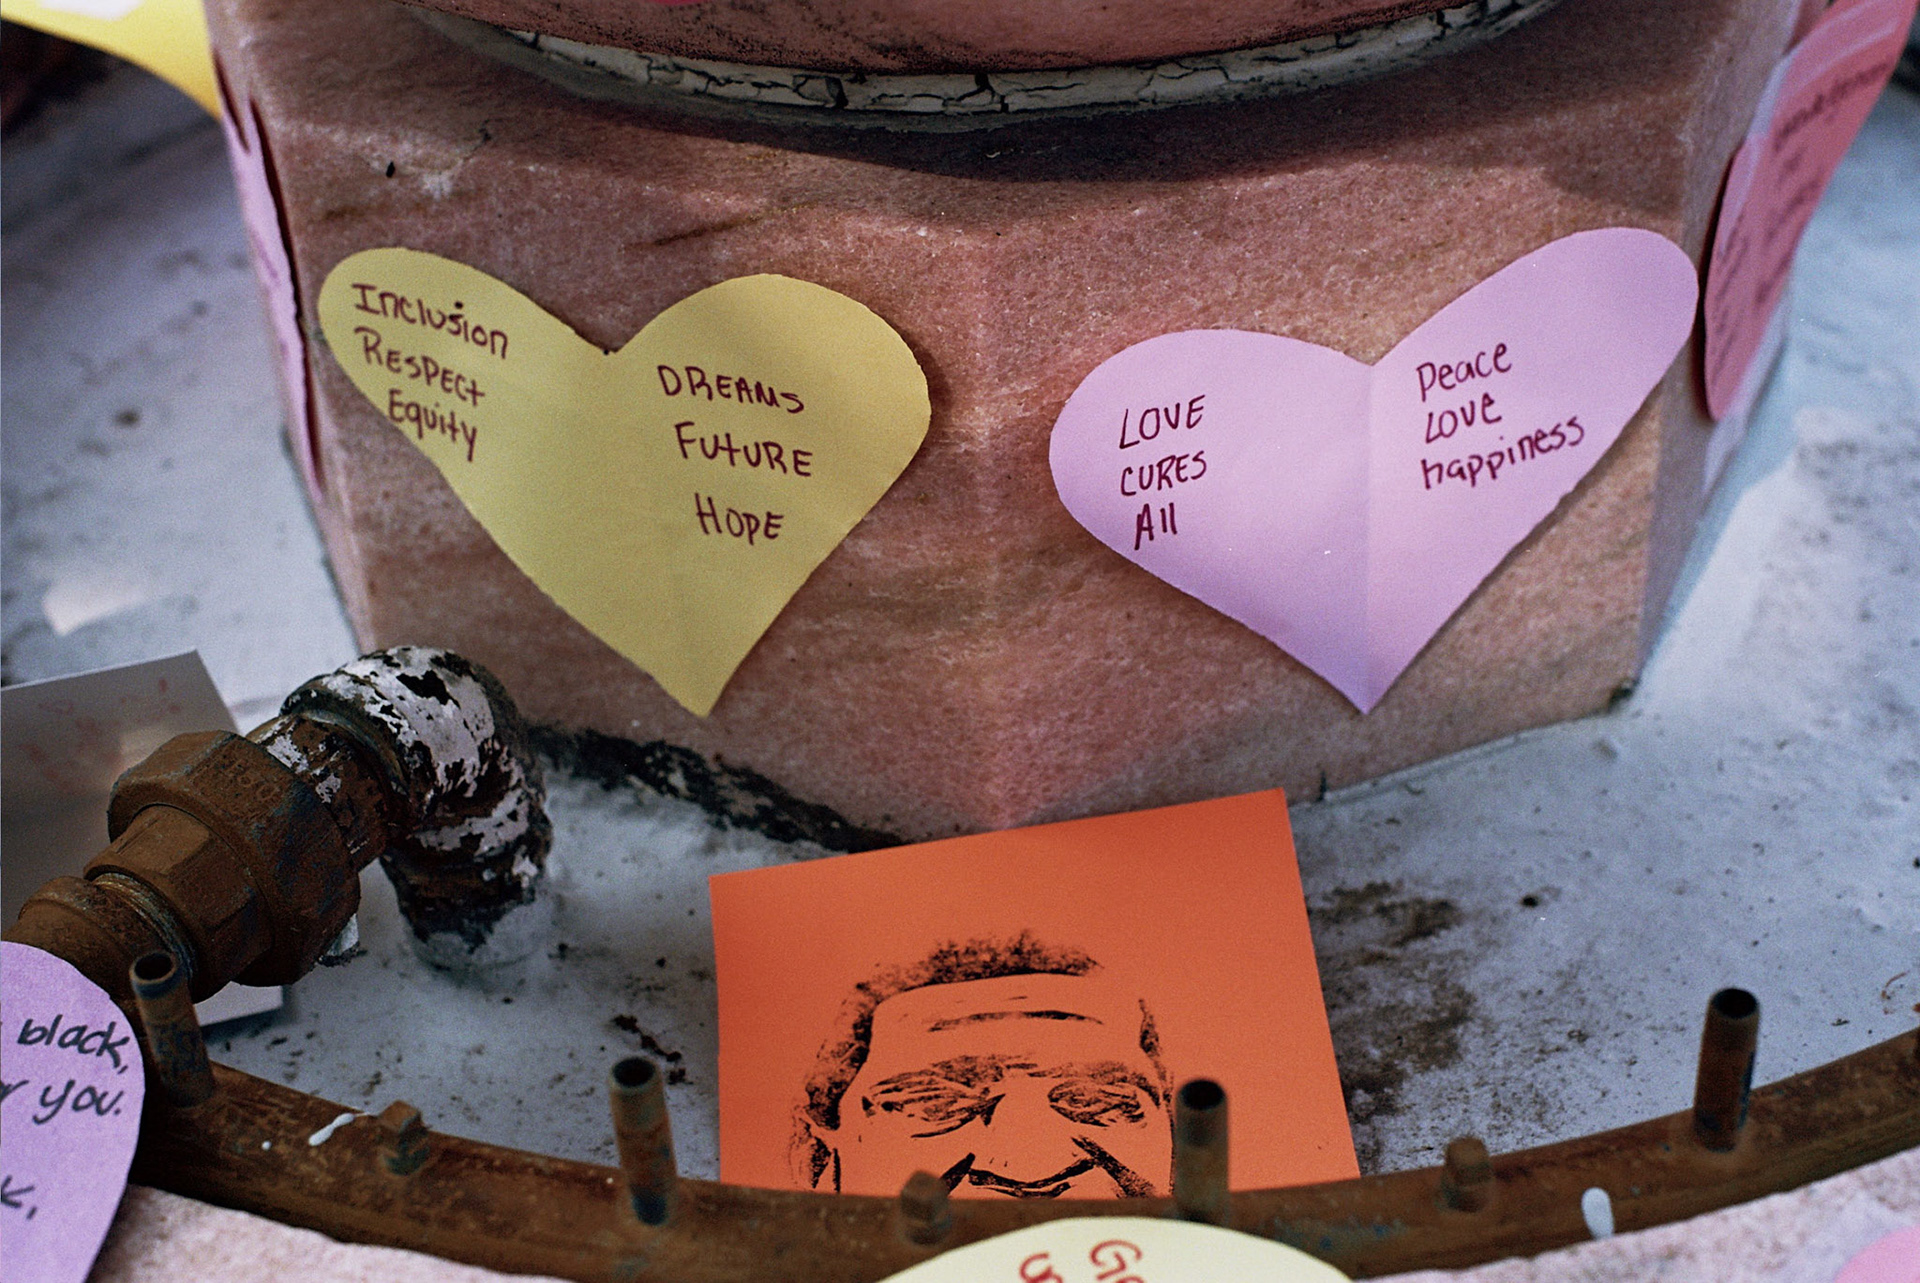 Inclusion
Respect
Equity
DREAMS
FUTURE
HOPE
LOVE
CURES
All
Peace
Love
happiness
black,
you.